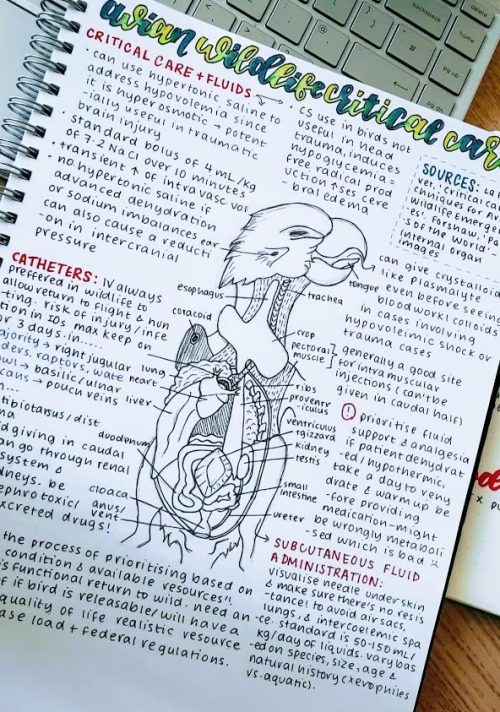 avian wildlife critical car
CRITICAL CARE + FLUIDS
• can use hypertonic saline to
address hypovolemia since
it is hyperosmotic → potent
-ially useful in traumatic
brain injury
• standard bolus of 4mL/kg
of 7.2 NaCl over 10 minutes
• transient ↑ of intravasc vol
• no hypertonic saline if
advanced dehydration
or sodium imbalances
can also cause a reducti
-on in intercranial
pressure
• cs use in birds not
useful in head
trauma, induces
hypoglycemia
free radical prod
uction ↑ses cere
-bral edema
SOURCES:
vet. 'critical ca
chniques for A
wildlife Emerge
-es'. Forshaw. 'Pa
s of the World'
internal organ
images
can give crystalloi
like plasmalyte
even before seein
bloodwork! colloids
in cases involving
hypovoleimic shock or
trauma cases
ear
esophagus
coracoid
tongue
trachea
crop
pectoral
muscle
generally a good site
for intramuscular
injections (can't be
given in caudal half)
lung
heart
liver
ribs
proventr
-iculus
ventriculus
gizzard
kidney
testis
duodenum
small
intestine
cloaca
anus/
vent
ureter
CATHETERS: IV always
preffered in wildlife to
allow return to flight & hun
-ting. risk of injury/infe
tion in IOs max keep on
r 3 days. in....
ajority → right jugular
ders, raptors, wate
owl → basilic/ulnar
cans → pouch veins
tibiotarsus/dist
na
id giving in caudal
an go through renal
system &
dneys. be
ephrotoxic/
xcreted drugs!
! prioritise fluid
support & analgesia
if patient dehydrat
-ed/hypothermic,
take a day to rehy
drate & warm up be
-fore providing
medication-might
be wrongly metaboli
-sed which is bad
SUBCUTANEOUS FLUID
ADMINISTRATION:
visualise needle under skin
& make sure there's no resis
-tance! to avoid air sacs,
lungs, & intercoelemic spa
-ce. standard is 50-150mL/
kg/day of liquids. vary bas
-ed on species, size, age &
natural history (xerophiles
vs. aquatic).
the process of prioritising based on
condition & available resources"
is functional return to wild. need an
f if bird is releasable/will have a
quality of life realistic resource
ase load + federal regulations.
backspace
pause
enter
pg up